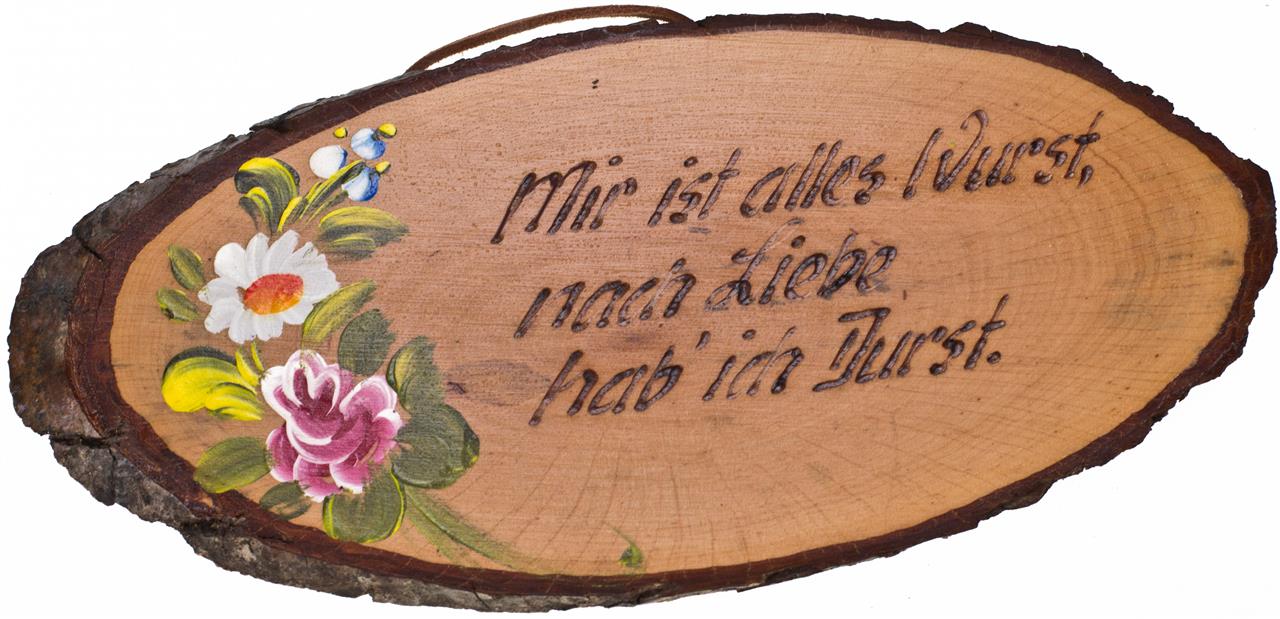 Mir ist alles Wurst,
nach Liebe
hab' ich Durst.